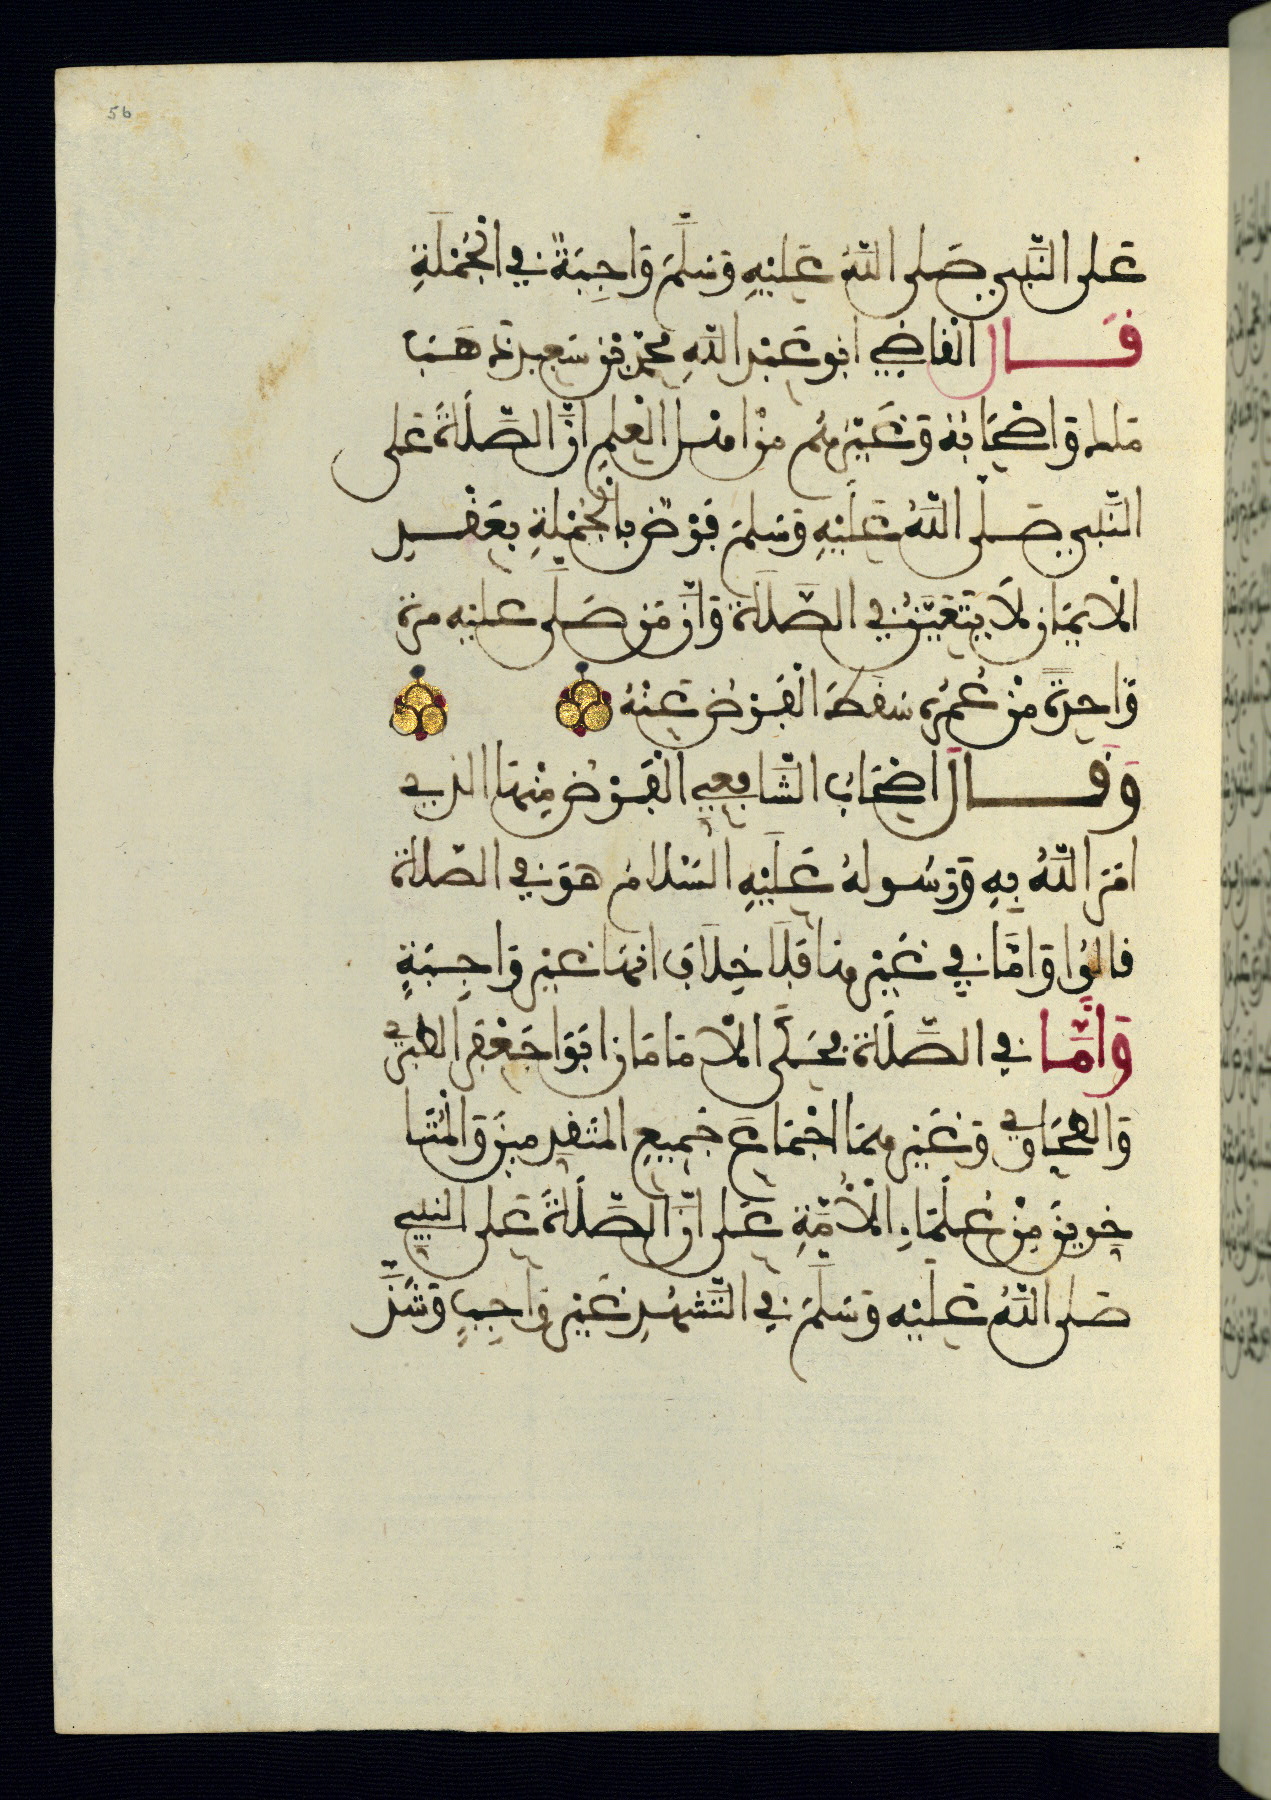 56
عَلى النَّبي صَلى اللَّهُ عَلَيْهِ وَسَلَّمَ وَاجِبَةٌ في الْجُمْلَةِ
قَال الْقاضِي ابُو عَبْدِ اللَّهِ مُحَمَّد بْن سَعِيد ذَهَبَ
مَلك وَاصْحَابُهُ وَغَيْرُهُم مِنْ اهْل الْعِلْمِ انَّ الصَّلَاةَ عَلى
النَّبي صَلَّى اللَّهُ عَلَيْهِ وَسَلَّمَ فَرْضٌ بِالْجُمْلَةِ بِعَقْدِ
الْايمَانِ لَا يَتَعَيَّنُ في الصَّلَاةِ وَانَّ مَن صَلَّى عليْهِ مرةً
وَاحِدَةً مِنْ عُمُرِهِ سَقَطَ الْفَرْضُ عَنْهُ
وَقَالَ اصْحَابُ الشَّافِعِي الْفَرْضُ مِنْهَا الذي
امَرَ اللَّهُ بِهِ وَرَسُولهُ عَلَيْهِ السَّلامُ هوَ في الصَّلاة
قالُوا وَامَّا في غَيْرِهَا فَلَا خِلَافَ انهَا غَيْر وَاجِبَةٍ
وَامَّا في الصَّلَاةِ فحَكَى الْامَامَانِ ابُوا جَعْفَر الطبَري
وَالطحَاوي وَغَيْرهمَا اجْمَاعَ جَمِيعِ المتَقَدِّمينَ وَالْمُتَا
خِرينَ مِنْ عُلَمَاءِ الْأُمَّةِ عَلى انَّ الصَّلَاةَ عَلى النبي
صَلى اللَّهُ عَلَيْهِ وَسَلَّمَ في التَّشَهُّدِ غَيْر وَاجِبٍ وَشَذَّ